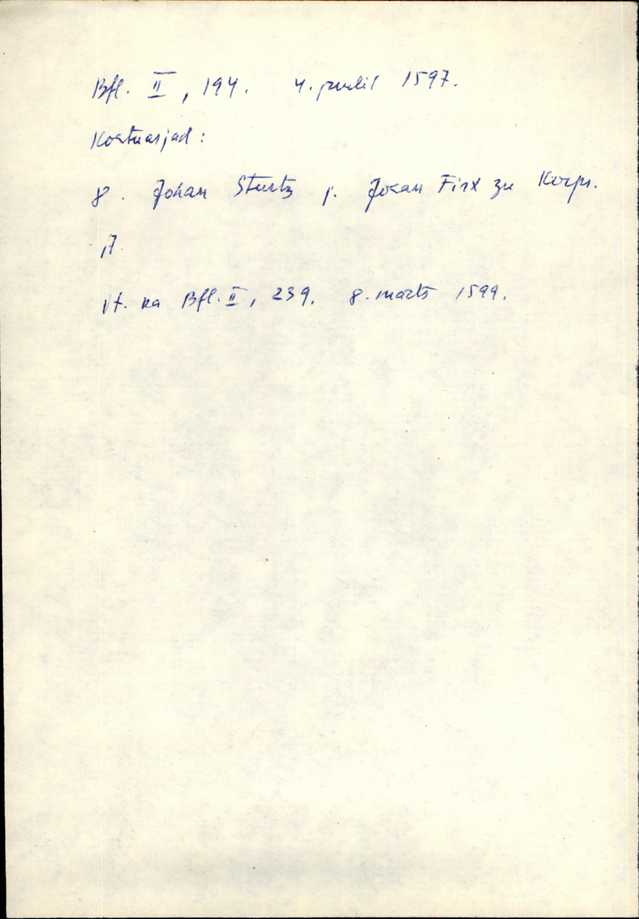 Bfl. II, 194. 4. juulil 1597.
Kostuasjad:
8. Johan Sturtz j. Johan Firx zu Korps.
17.
vt. ka Bfl. II, 239. 8. märts 1599.